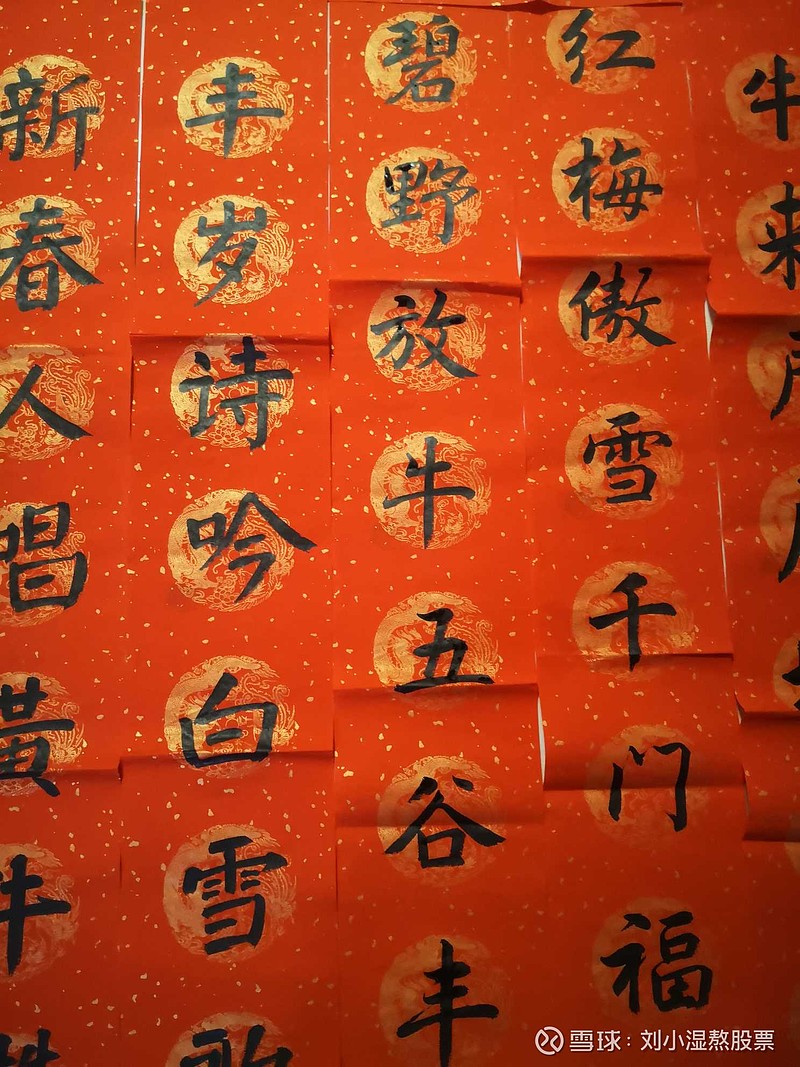 牛来
红梅傲雪千门福
碧野放牛五谷丰
丰岁诗吟白雪歌
新春人唱黄牛
雪球：刘小湿熬股票